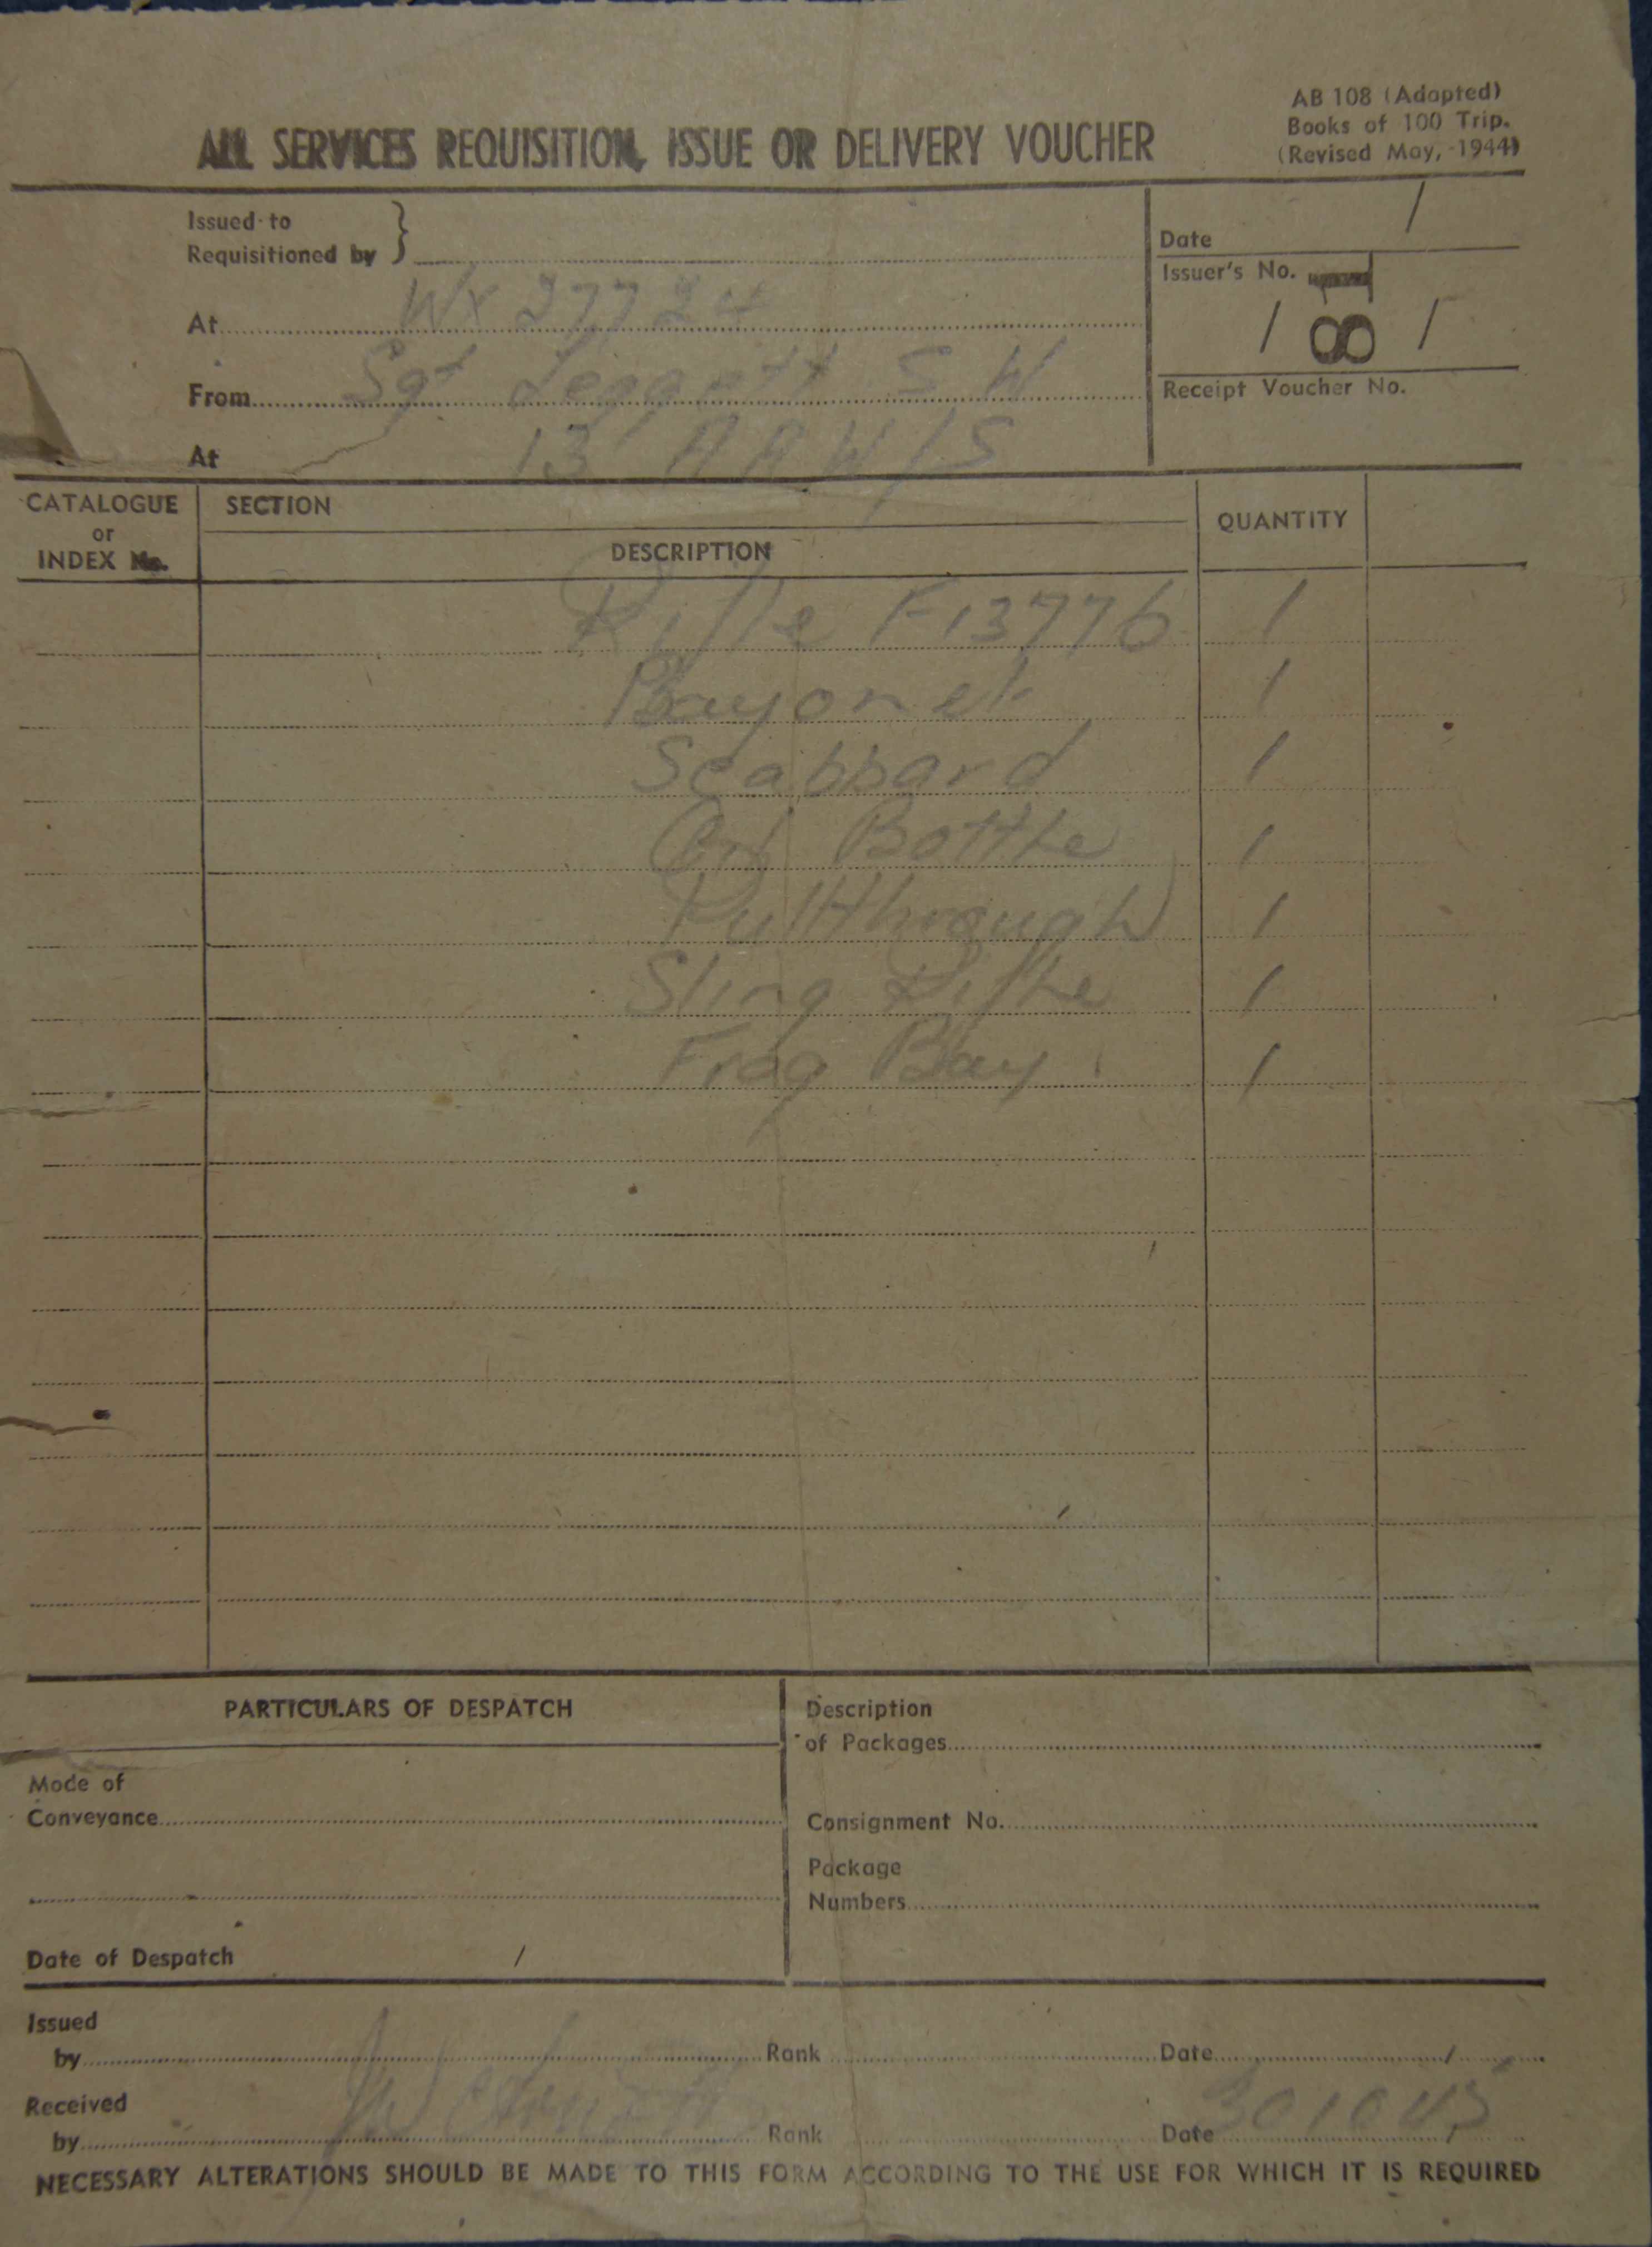 AB 108 (Adapted)
Books of 100 Trip.
(Revised May, 1944)
ALL SERVICES REQUISITION, ISSUE OR DELIVERY VOUCHER
Issued to
Requisitioned by }
Date /
Issuer's No.
/ 81 /
At WX 27724
From Sgt Leggett S W
Receipt Voucher No.
At 13 AAW/S
CATALOGUE or INDEX No.
SECTION
DESCRIPTION
QUANTITY
Rifle F13776 1
Bayonet 1
Scabbard 1
Bottle 1
Pullthrough 1
Sling Rifle 1
Frog Bay. 1
PARTICULARS OF DESPATCH
Description
of Packages
Mode of
Conveyance
Consignment No.
Package
Numbers
Date of Despatch /
Issued
by Rank Date /
Received
by Rank Date 301045
NECESSARY ALTERATIONS SHOULD BE MADE TO THIS FORM ACCORDING TO THE USE FOR WHICH IT IS REQUIRED